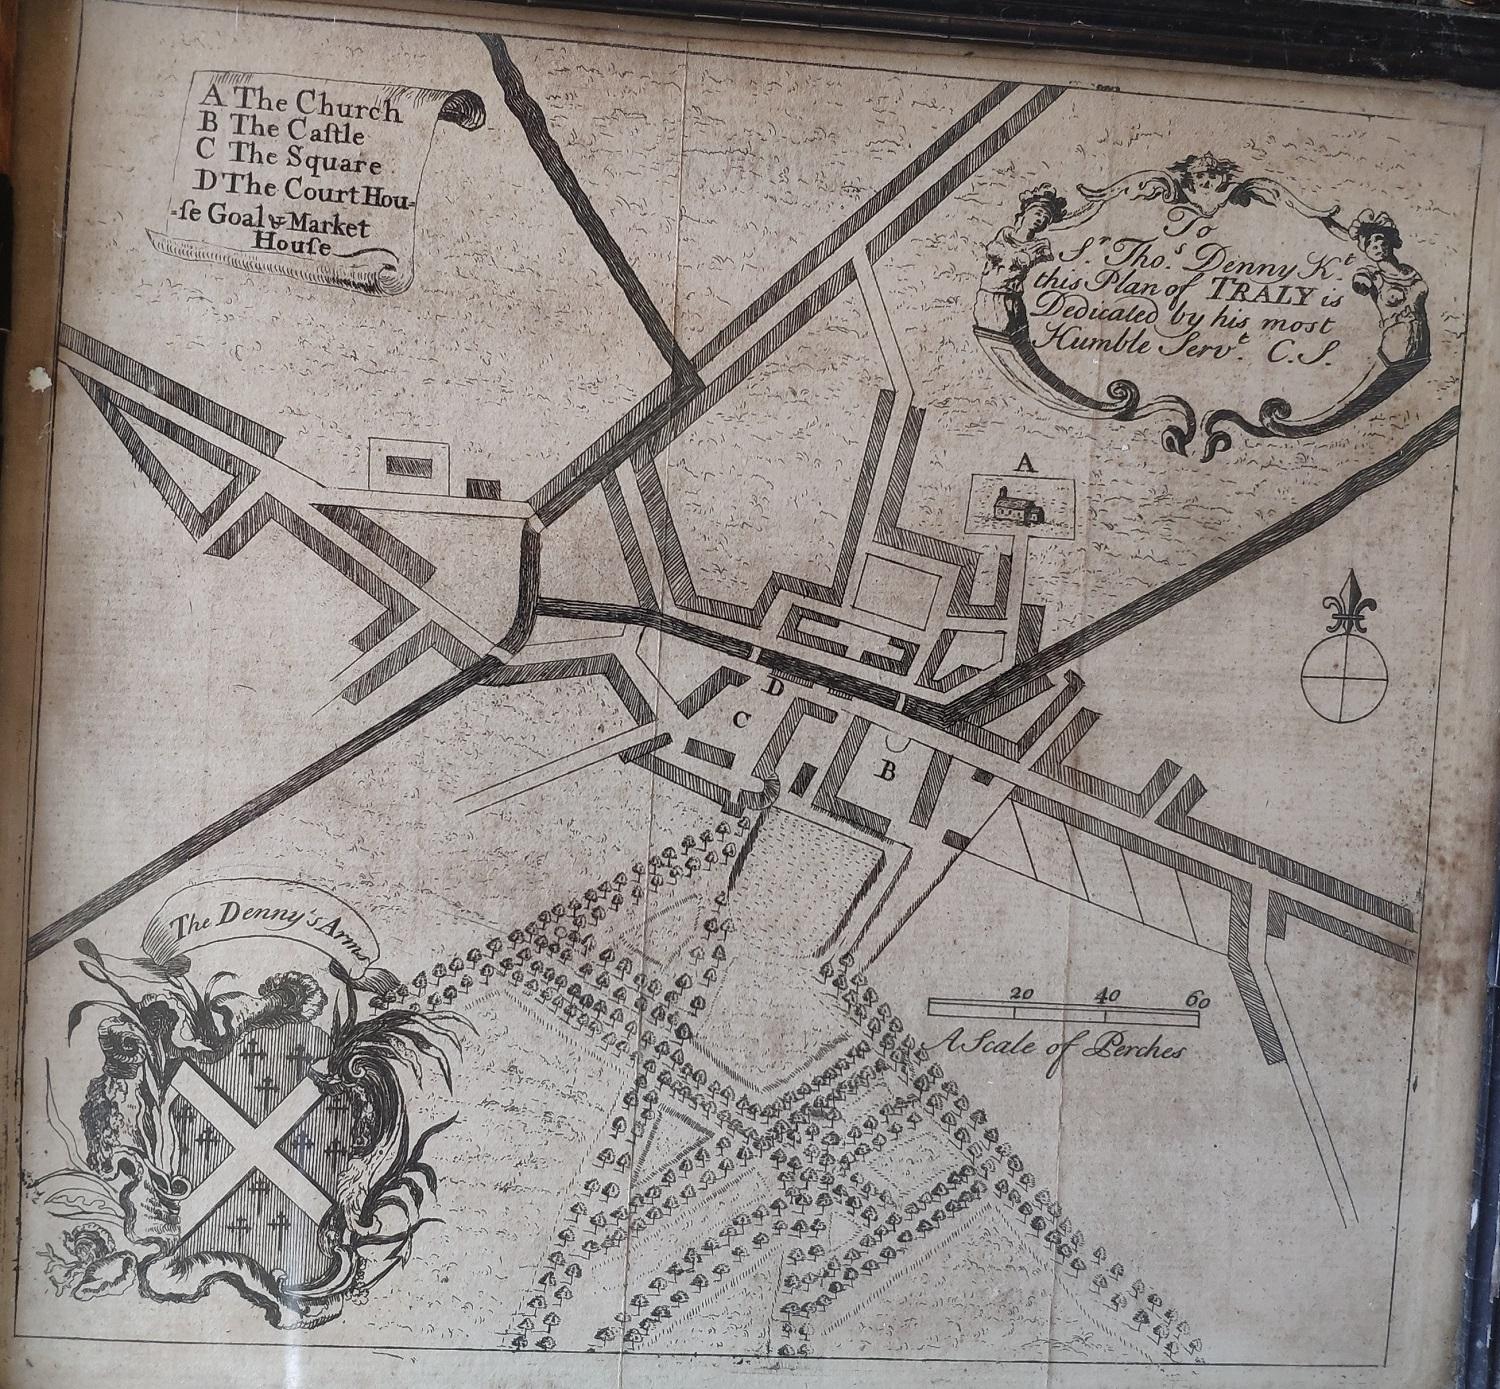 A The Church
B The Caſtle
C The Square
D The Court Hou-
-ſe Goal & Market
Houſe
To
Sʳ. Thoˢ. Denny Kᵗ.
this Plan of TRALY is
Dedicated by his most
Humble Servᵗ. C.S.
A
D
C
B
The Denny's Arms
20 40 60
A Scale of Perches